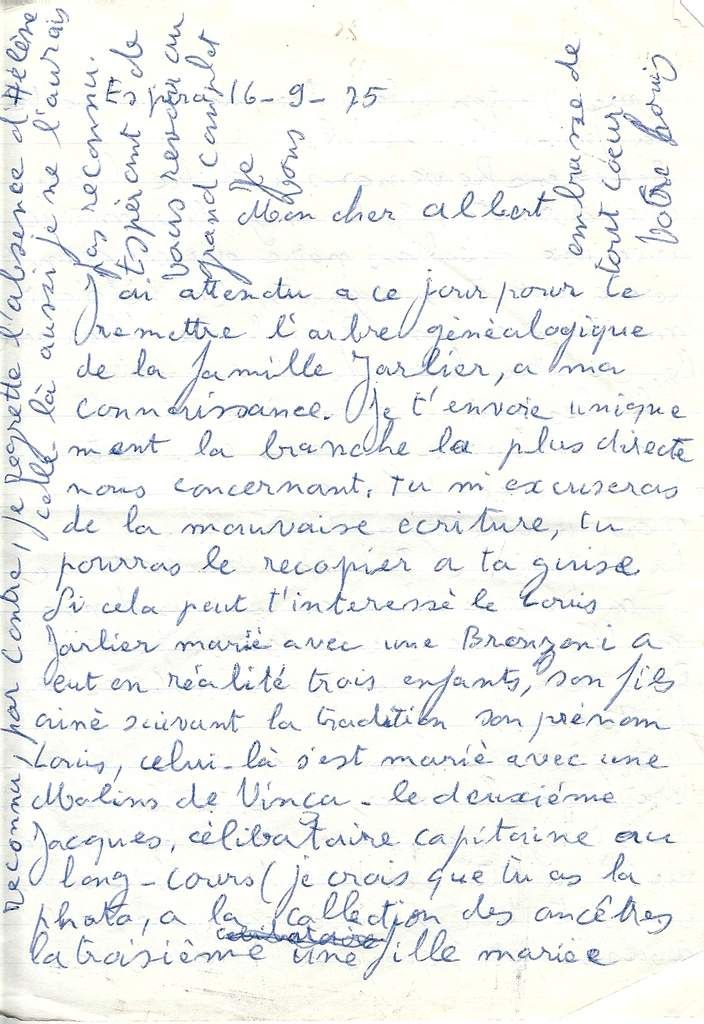 Espira 16-9-75
Mon cher Albert
J'ai attendu a ce jour pour te
remettre l'arbre généalogique
de la famille Jarlier, a ma
connaissance. Je t'envoie unique
ment la branche la plus directe
nous concernant. Tu m'excuseras
de la mauvaise écriture, tu
pourras le recopier a ta guise
Si cela peut t'interessè le Louis
Jarlier marié avec une Bronzoni a
eut en réalité trois enfants, son fils
ainè suivant la tradition son prénom
Louis, celui-là s'est mariè avec une
Molins de Vinça - le deuxiéme
Jacques, célibataire capitaine au
long-cours (je crois que tu as la
photo, a la collection des ancêtres
la troisième une fille mariée
reconnu, par contre, je regrette l'absence d'Hélène
celle là aussi je ne l'aurais
pas reconnu.
Espérant de
vous revoir au
grand complet
Je
vous
embrasse de
tout coeur.
Votre Louis